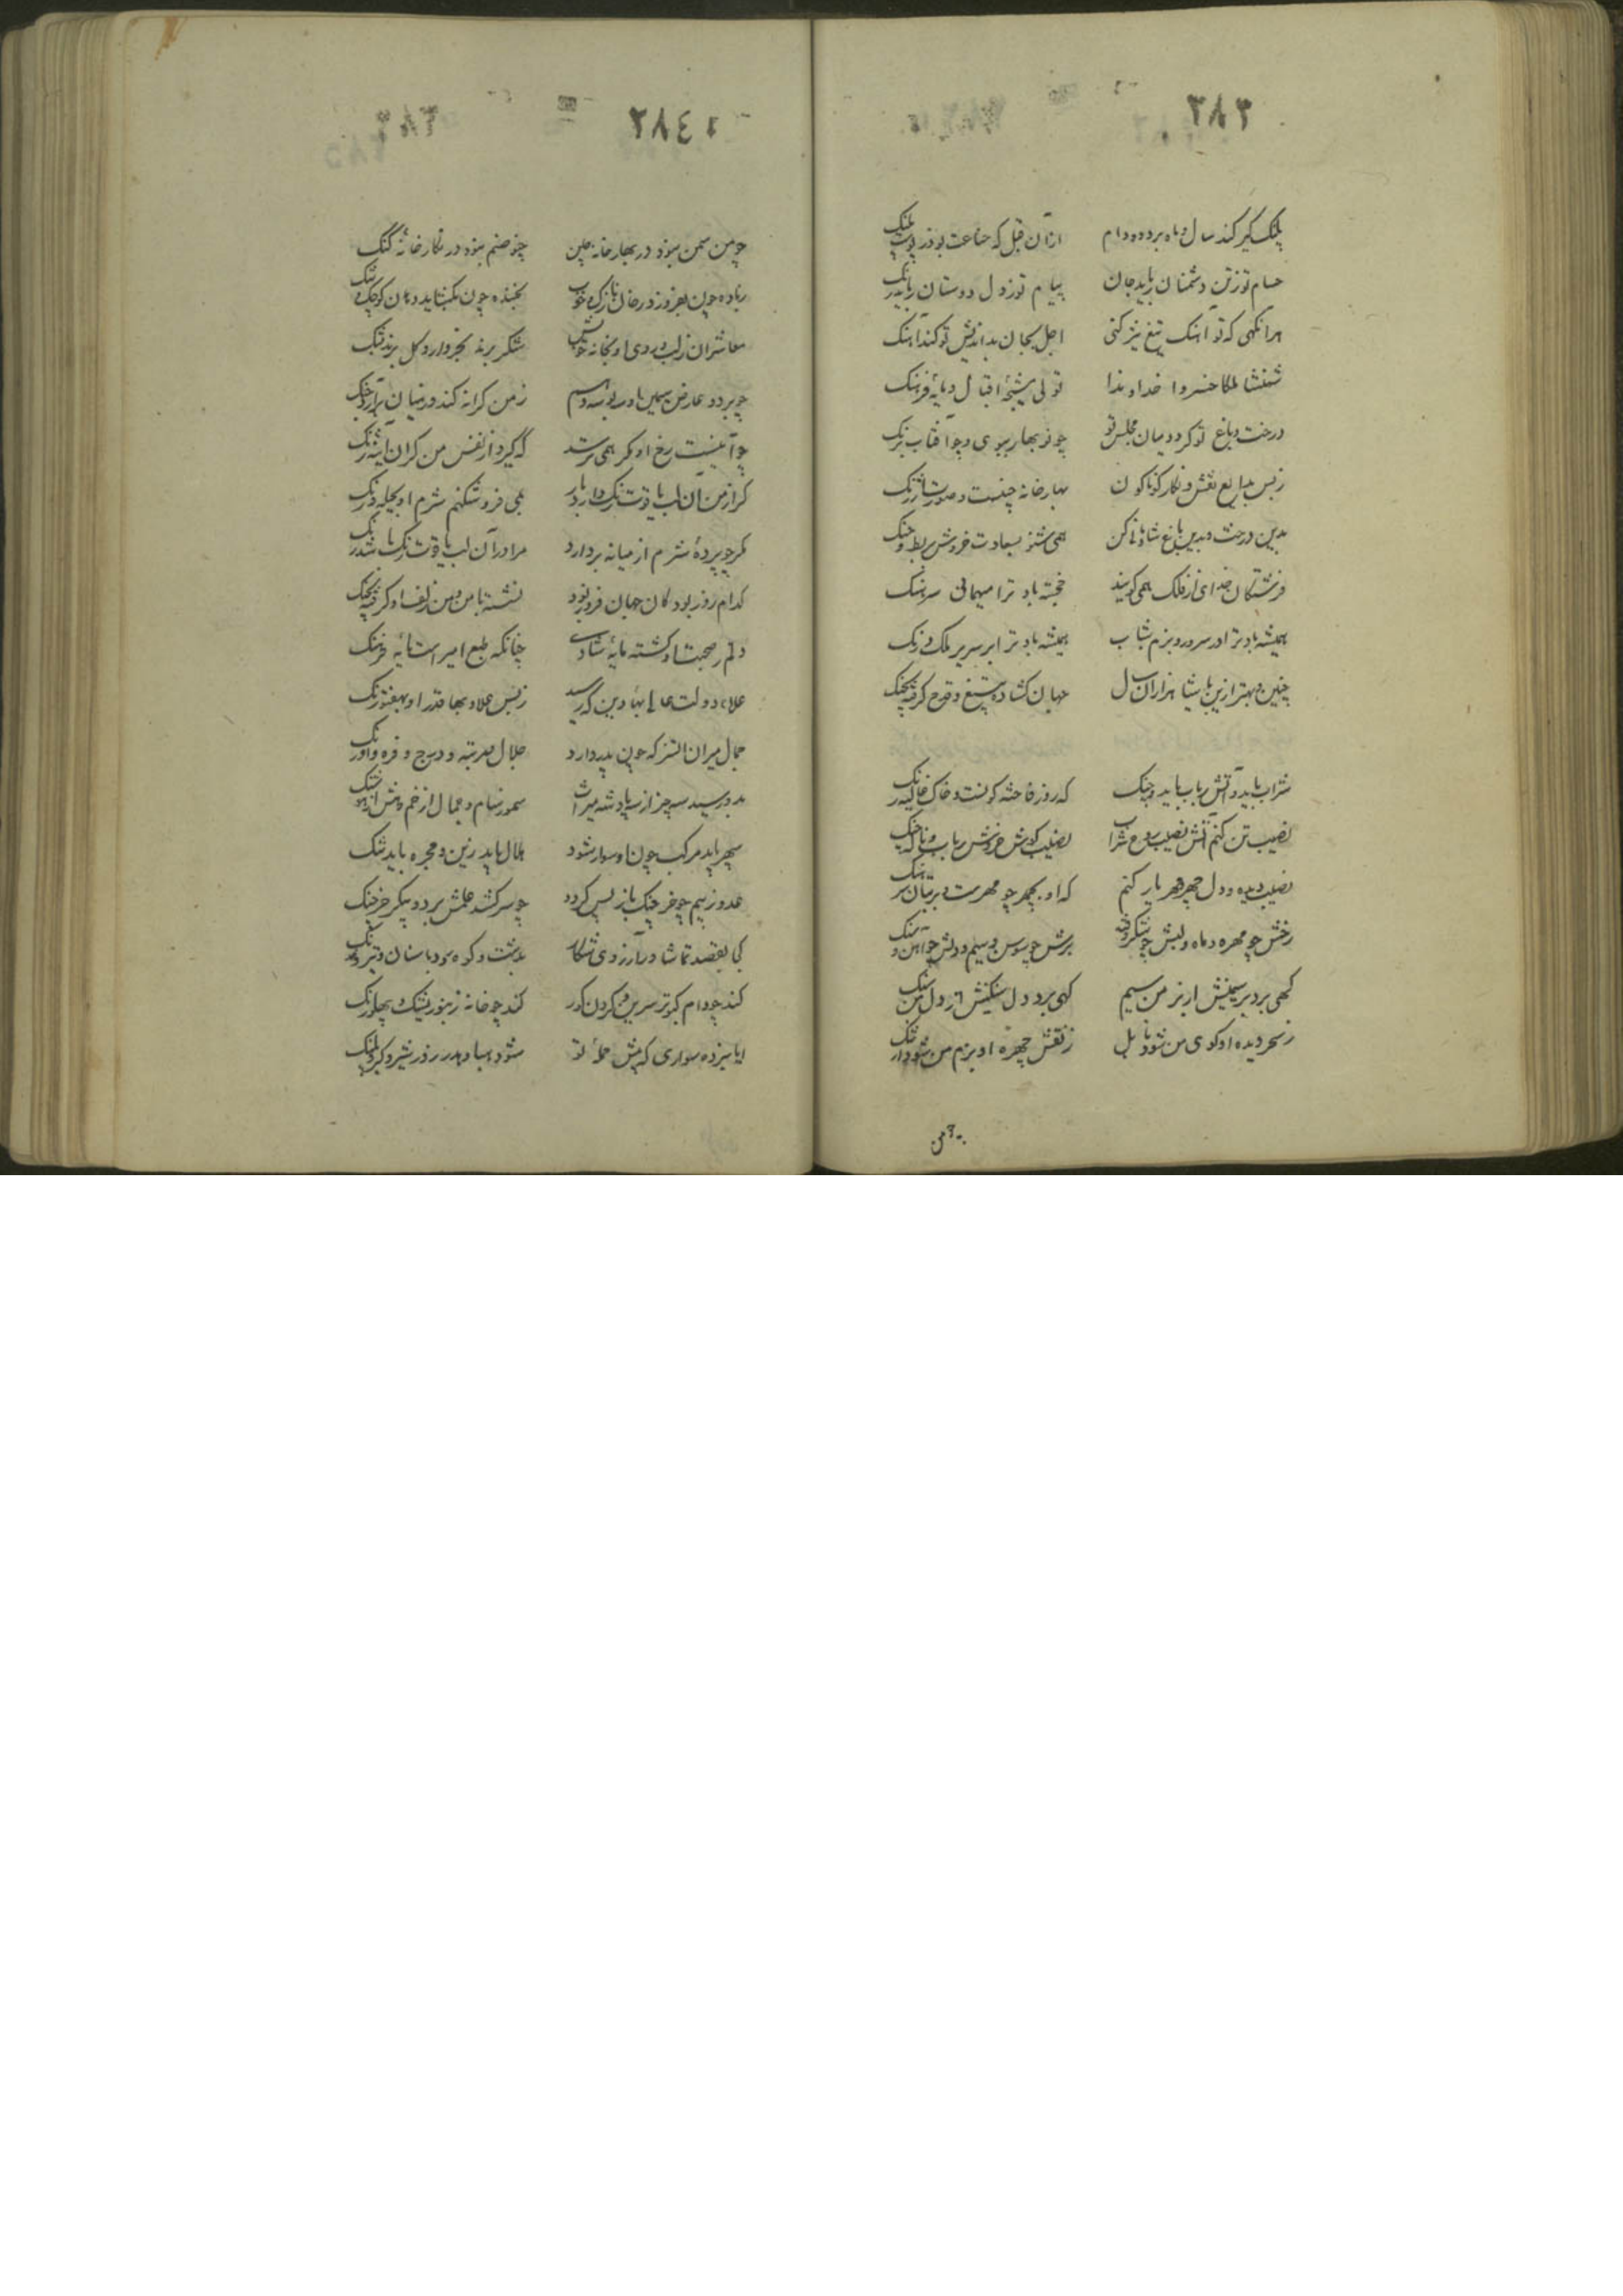 ٢٨٣
پلنگ کبر کند سال و ماه بر دد و دام ازان قبل که صناعت بود ز پوست پلنک
حسام تو ز تن دشمنان رباید جان پیام تو ز دل دوستان زداید زنک
هر انکهی که تو آهنک تیغ تیز کنی اجل بجان بداندیش تو کند آهنک
شهنشها ملکا خسروا خداوندا توئی نتیجهٔ اقبال و مایهٔ فرهنک
درخت و باغ تو کرد میان مجلس تو چو نوبهار ببوی و چو آفتاب برنک
ز بس بدایع نقش و نکار کوناکون بهارخانه چینست و صورت ارژنک
بدین درخت و بدین باغ شادمانی کن همی شنو بسعادت خروش بربط و چنک
فرشتکان خدای از فلک همی کویند خجسته باد ترا میهمانی سرهنک
همیشه باد ترا در سرور و بزم شتاب همیشه باد ترا بر سریر ملک درنک
چنین و بهتر ازین باش شاها هزاران سال جهان کشاده بتیغ و قدح کرفته بچنک
شراب باید و آتش رباب باید و چنک که روز فاخته کونست و خاک خاکی رنک
نصیب تن کنم آتش نصیب روح شراب نصیب کوش خروش رباب و ناله چنک
نصیب دیده و دل چهر و مهر یار کنم که او بچهر چو مهرست بر بتان سرهنک
رخش چو مهره و ماه و لبش چو شکر و می برش چو سوسن و سیم و دلش چو آهن و سنک
کهی برد بر سیمینش از بر من سیم کهی برد دل سنکینش از دل من سنک
ز سحر دیده او کوی من شود بابل ز نقش چهره او بزم من شود ارتنک
چو من
٢٨٤
چو من سمن نبود در بهارخانه چین چنو صنم نبود در نکارخانهٔ گنک
بباده چون بفروزد رخان نازک خوب بخنده چون بکشاید دهان کوچک تنک
معاشران ز لب و روی او بخانه خویش شکر برند بخروار و کل برند بتنک
چو بر دو عارض سیمین او ببوسه رسم ز من کرانه کند در میان برآرد جنک
چو آینست رخ او مکر همی ترسد که گیرد از نفس من کران آینه زنک
کر از من آن لب یاقوت رنک دارد باز همی فروشکنم شرم او بحیله و رنک
کر چو پردهٔ شرم از میانه بردارد مرا در آن لب یاقوت رنک باشد رنک
کدام روز بود کان جهان فروز بود نشسته با من و من زلف او کرفته بچنک
دلم ز صحبت او کشته مایهٔ شادی چنانکه طبع امیر است مایه فرهنک
علاء دولت عالی بهاء دین که رسید ز بس علا و بها قدر او بهفتورنک
جمال میران اتسز که چون پدر دارد جلال و مرتبه و درج و فره و اورنک
بدو رسید سه چیز از سه پادشه میراث سموّ ز سام و جمال از خم و هش از هوشنک
سپهر باید مرکب چون او سوار شود هلال باید زین و مجره باید تنک
عدو ز بیم چو خرچنک باز پس کردد چو سر کشد علمش بر دو پیکر خرچنک
کی بقصد تماشا و آرزوی شکار بدشت و کوه رود با سنان و تیر خدنک
کند چو دام کبوتر سرین و کردن کور کند چو خانه زنبور پشت و پهلو رنک
ایا نبرده سواری که پیش حملهٔ تو شود هبا و هدر روز شیر و کبر پلنک